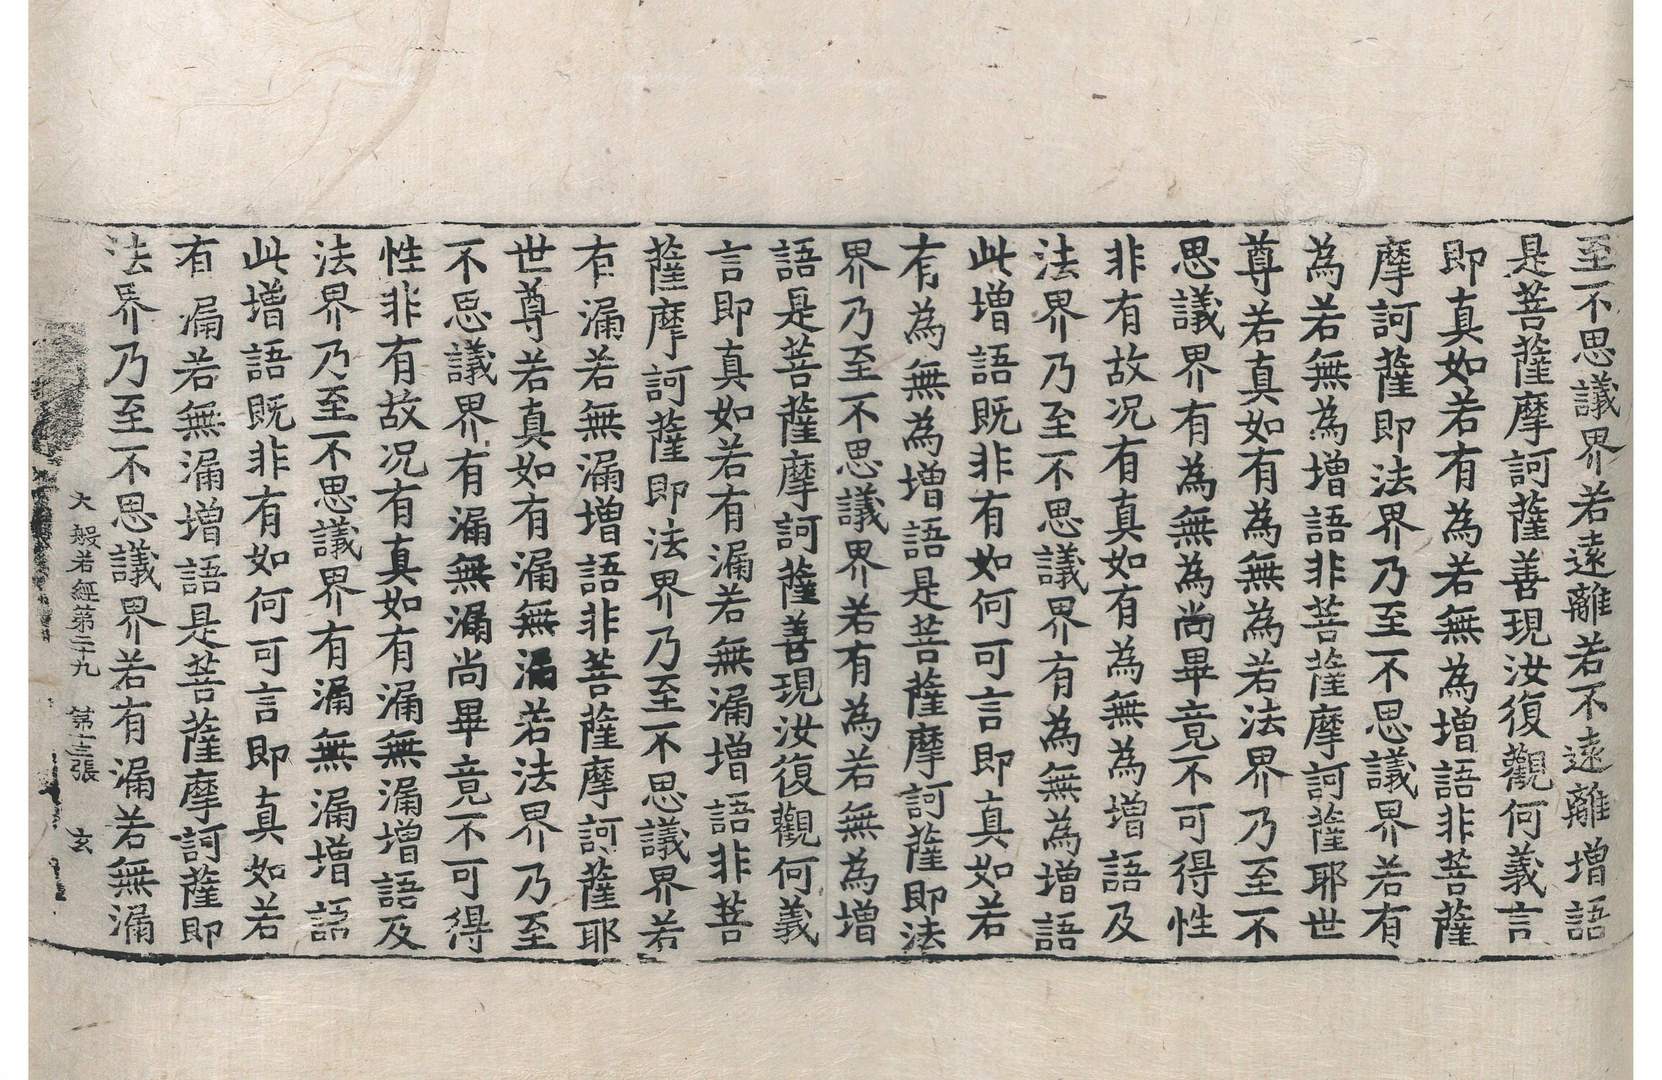 至不思議界若遠離若不遠離增語
是菩薩摩訶薩善現汝復觀何義言
即真如若有為若無為增語非菩薩
摩訶薩即法界乃至不思議界若有
為若無為增語非菩薩摩訶薩耶世
尊若真如有為無為若法界乃至不
思議界有為無為尚畢竟不可得性
非有故况有真如有為無為增語及
法界乃至不思議界有為無為增語
此增語既非有如何可言即真如若
有為無為增語是菩薩摩訶薩即法
界乃至不思議界若有為若無為增
語是菩薩摩訶薩善現汝復觀何義
言即真如若有漏若無漏增語非菩
薩摩訶薩即法界乃至不思議界若
有漏若無漏增語非菩薩摩訶薩耶
世尊若真如有漏無漏若法界乃至
不思議界有漏無漏尚畢竟不可得
性非有故况有真如有漏無漏增語及
法界乃至不思議界有漏無漏增語
此增語既非有如何可言即真如若
有漏若無漏增語是菩薩摩訶薩即
法界乃至不思議界若有漏若無漏
大般若經第二十九 第十三張 玄